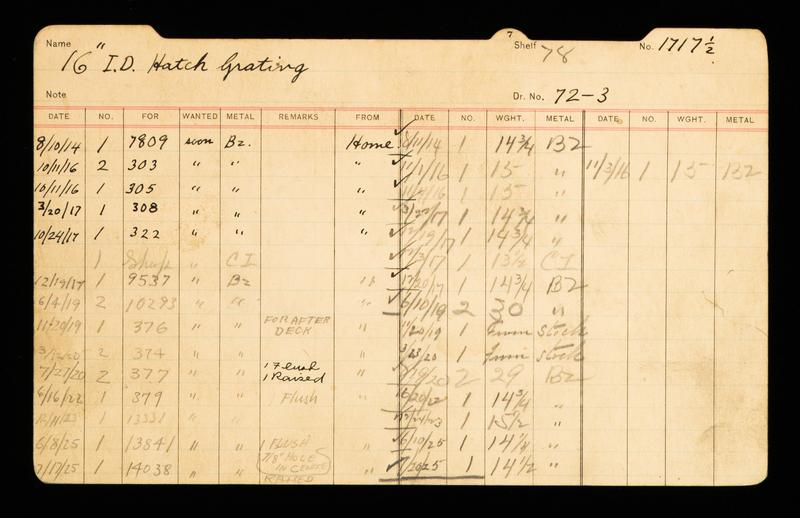 Name 16" I.D. Hatch Grating
7 Shelf 78 No. 1717 1/2
Note
Dr. No. 72-3
DATE NO. FOR WANTED METAL REMARKS FROM DATE NO. WGHT. METAL DATE NO. WGHT. METAL
8/10/14 1 7809 soon Bz. Home ✓ 8/11/14 1 14 3/4 BZ
10/11/16 2 303 " " " ✓ 11/1/16 1 15 " 11/3/16 1 15 BZ
10/11/16 1 305 " " " ✓ 1 15 "
3/20/17 1 308 " " " ✓ 1 14 3/4 "
10/24/17 1 322 " " " ✓ 1 14 3/4 "
1 Shop " CI ✓ 1 13 1/2 CI
12/19/17 1 9537 " Bz " ✓ 12/20/17 1 14 3/4 BZ
6/4/19 2 10293 " " " ✓ 6/10/19 2 30 "
11/20/19 1 376 " " FOR AFTER DECK " 11/20/19 1 From stock
2 374 " " " 3/23/20 1 From stock
7/27/20 2 377 " " 1 Flush 1 Raised " ✓ 2 29 BZ
6/16/22 1 379 " " Flush " ✓ 1 14 3/4 "
1 13331 " " ✓ 1 15 1/2 "
6/8/25 1 13841 " " 1 FLUSH " ✓ 6/10/25 1 14 1/4 "
7/8" HOLE IN CENTER
7/17/25 1 14038 " " RAISED " ✓ 7/20/25 1 14 1/2 "